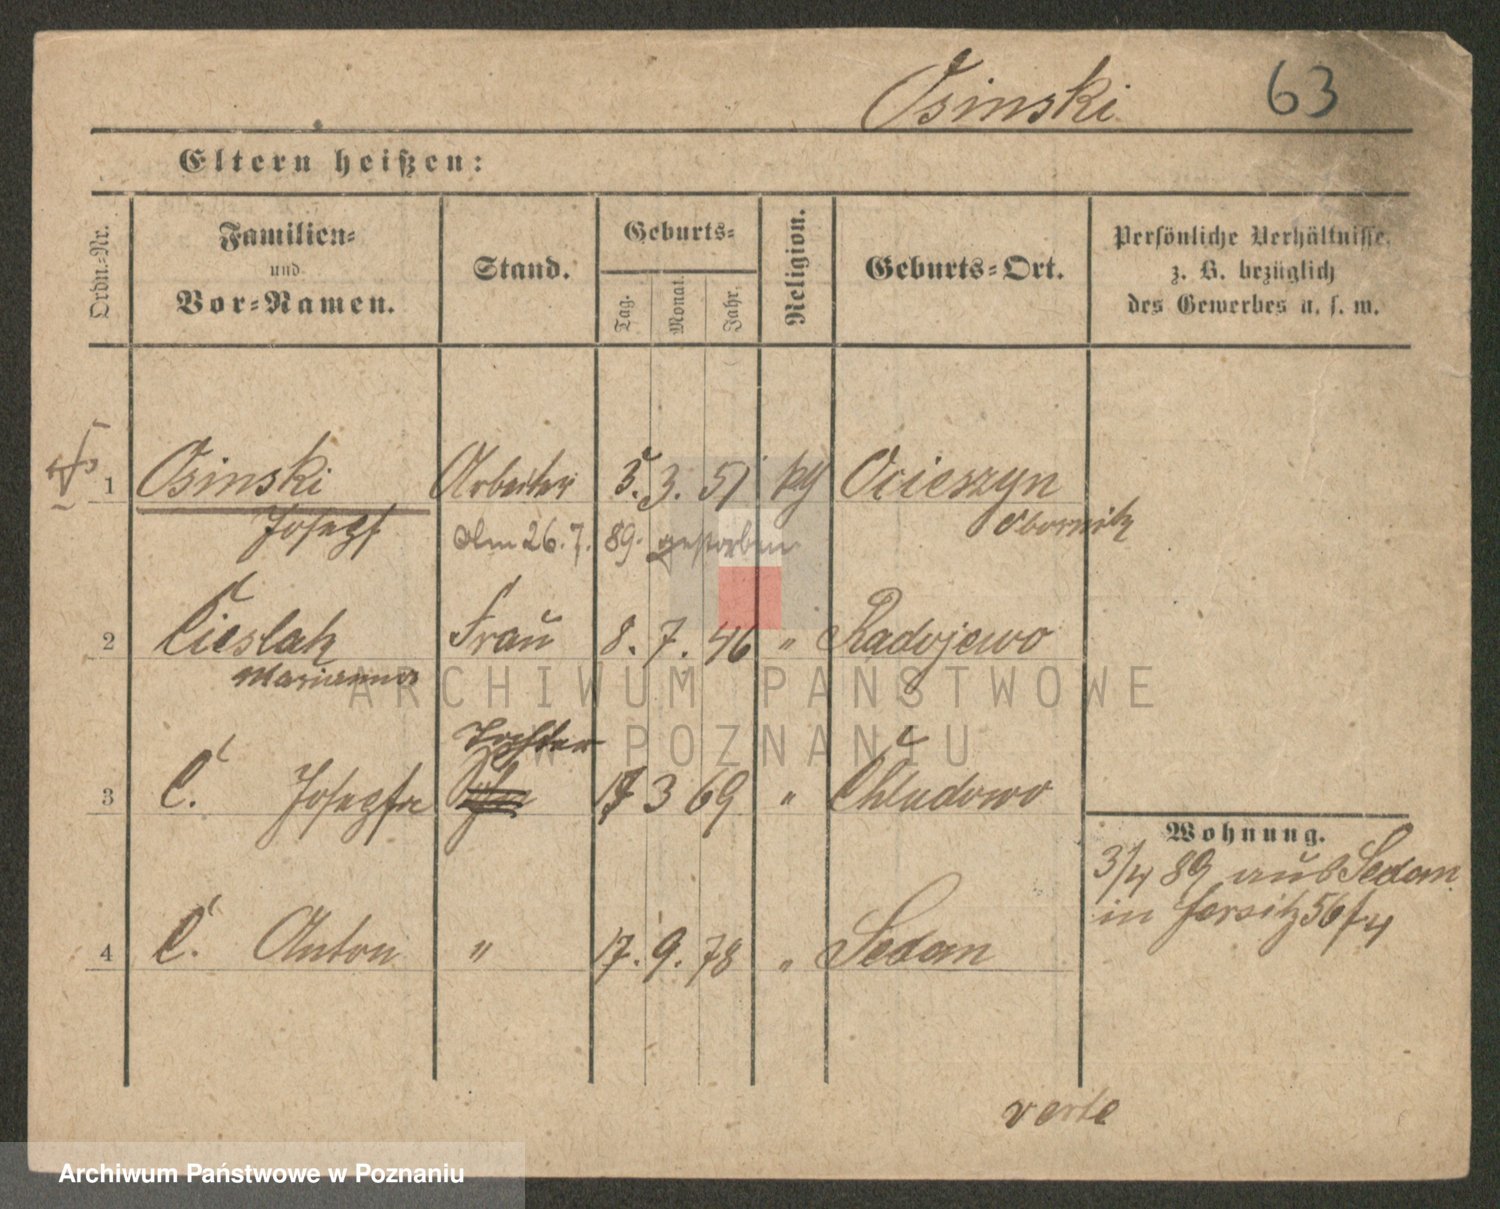 Osinski 63
Eltern heißen:
Ordn.-Nr.
Familien-
und
Vor-Namen.
Stand.
Geburts-
Tag.
Monat.
Jahr.
Religion.
Geburts-Ort.
Persönliche Verhältnisse,
z. B. bezüglich
des Gewerbes u. s. w.
1 Osinski Arbeiter 5. 3. 51 Ocieszyn
Josepf Obornik
Am 26. 7. 89. gestorben
2 Cieslak Frau 8. 7. 46 " Radojewo
Marianna
Tochter
3 C. Josepfa 17 3 69 " Chludowo
4 C. Anton " 17. 9. 78 " Sedan
Wohnung.
3/4 89 aus Sedan
in Jersitz 56
verte
ARCHIWUM PAŃSTWOWE
W POZNANIU
Archiwum Państwowe w Poznaniu